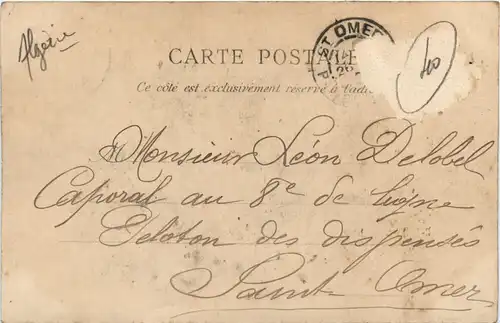 Algérie
CARTE POSTALE
ST OMER
40
Ce côté est exclusivement réservé à l'ad
Monsieur Léon Delobel
Caporal au 8e de ligne
Peloton des dispensés
Saint Omer